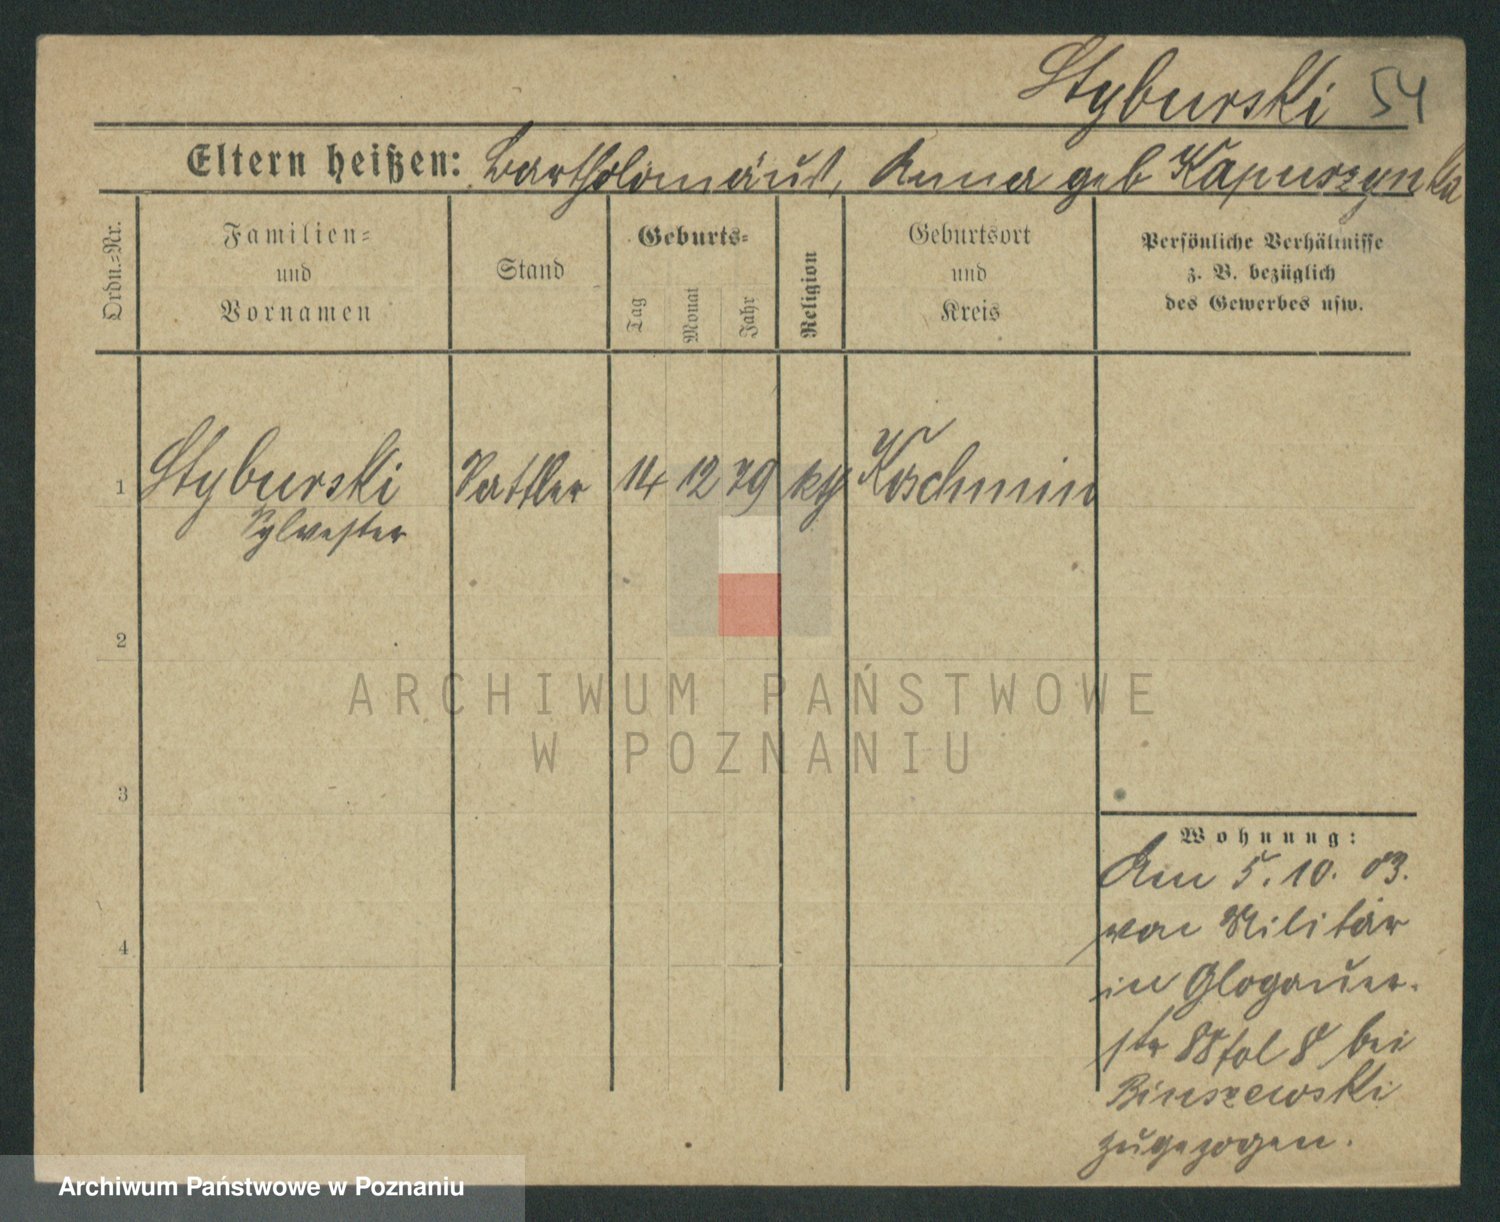 Styburski 54
Eltern heißen: Bartholomäus, Anna geb Kapuszynska
Ordn.-Nr.
Familien-
und
Vornamen
Stand
Geburts-
Tag
Monat
Jahr
Religion
Geburtsort
und
Kreis
Persönliche Verhältnisse
z. B. bezüglich
des Gewerbes usw.
1 Styburski Sattler 14 12 79 kth Koschmin
Sylvester
2
3
4
ARCHIWUM PAŃSTWOWE
W POZNANIU
Wohnung:
Am 5. 10. 03.
von Militär
in Glogauer-
str 88 bei
zugezogen.
Archiwum Państwowe w Poznaniu